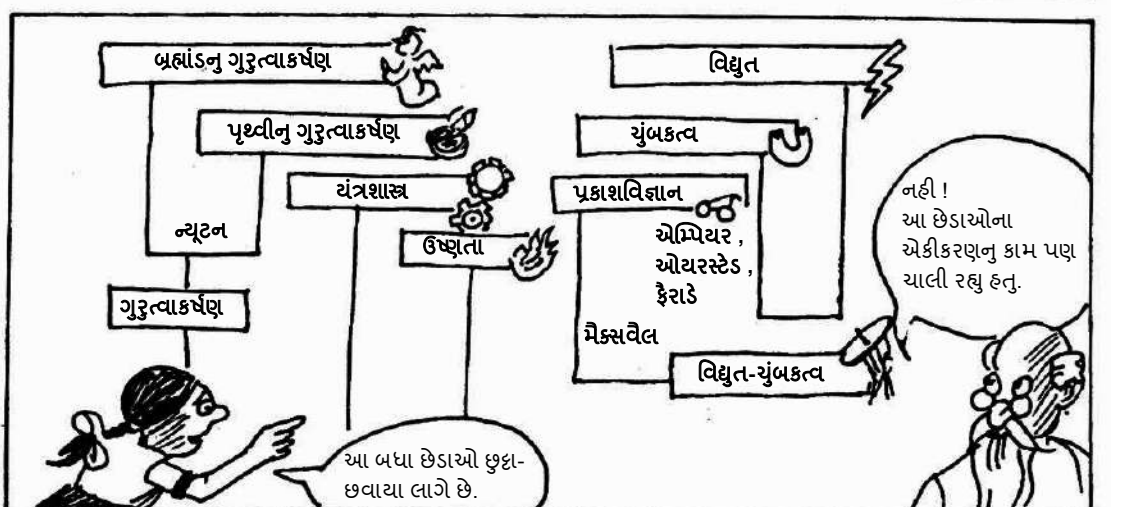 બ્રહ્માંડનુ ગુરુત્વાકર્ષણ
પૃથ્વીનુ ગુરુત્વાકર્ષણ
યંત્રશાસ્ત્ર
ઉષ્ણતા
ન્યૂટન
ગુરુત્વાકર્ષણ
વિદ્યુત
ચુંબકત્વ
પ્રકાશવિજ્ઞાન
એમ્પિયર ,
ઓયરસ્ટેડ ,
ફૈરાડે
મૈક્સવૈલ
વિદ્યુત-ચુંબકત્વ
આ બધા છેડાઓ છુટ્ટા-
છવાયા લાગે છે.
નહી !
આ છેડાઓના
એકીકરણનુ કામ પણ
ચાલી રહ્યુ હતુ.